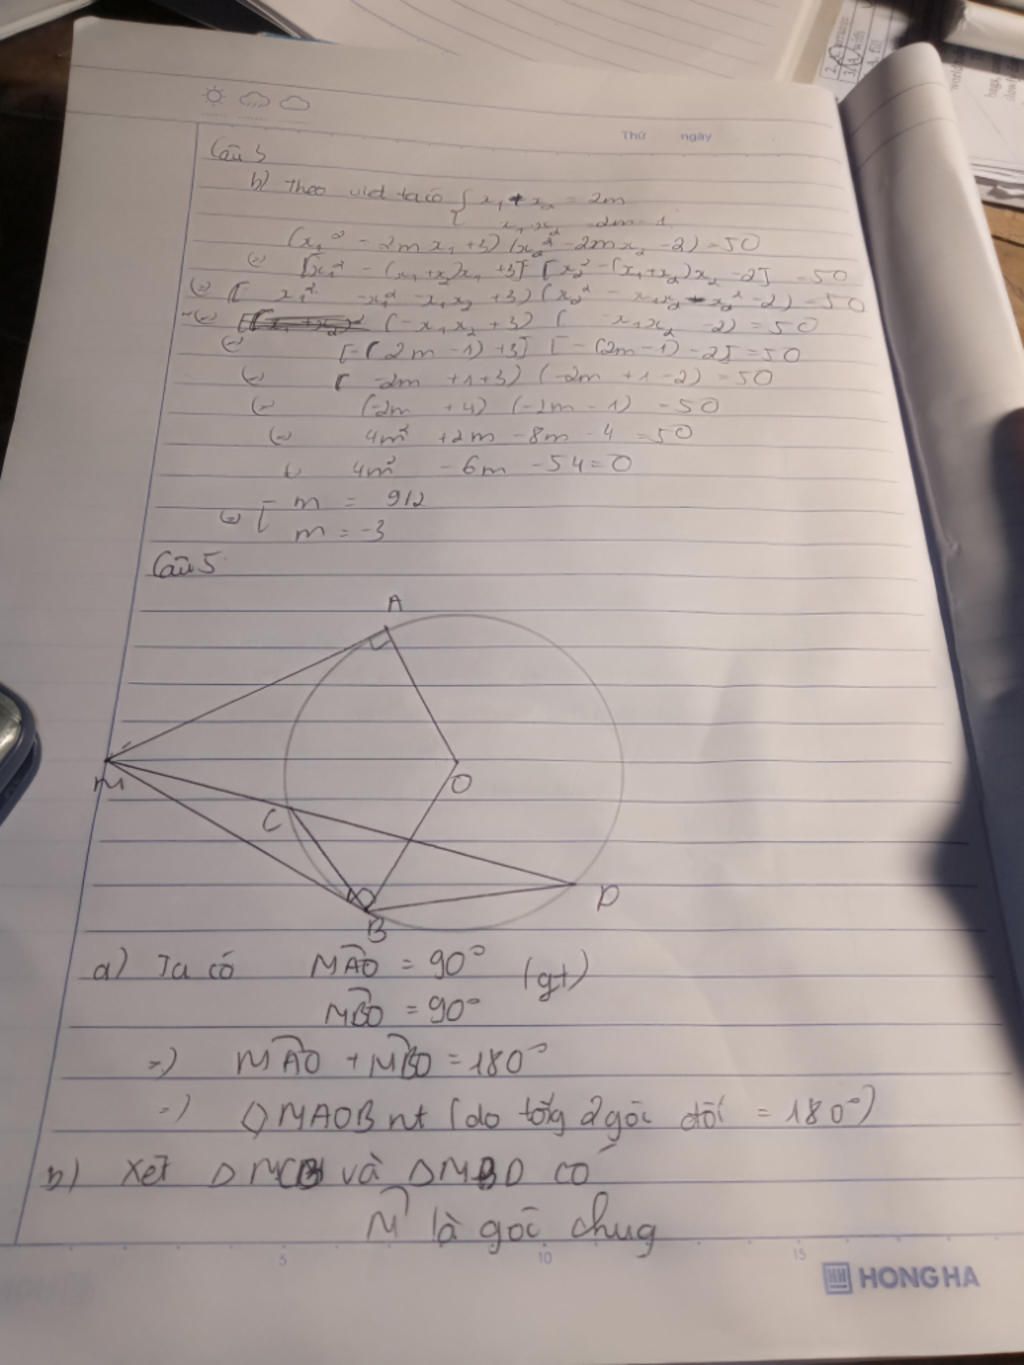 Thứ ngày
Câu 3
b) Theo viet ta có { x₁ + x₂ = 2m
x₁.x₂ = 2m - 1
(x₁² - 2mx₁ + 3)(x₂² - 2mx₂ - 2) = 50
(=) [x₁² - (x₁+x₂)x₁ + 3] [x₂² - (x₁+x₂)x₂ - 2] = 50
(=) [ x₁² - x₁² - x₁x₂ + 3) (x₂² - x₁x₂ - x₂² - 2) = 50
(=) (-x₁x₂ + 3) ( -x₁x₂ - 2) = 50
(=) [-(2m - 1) + 3] [-(2m - 1) - 2] = 50
(=) ( -2m + 1 + 3) (-2m + 1 - 2) = 50
(=) (-2m + 4) (-2m - 1) = 50
(=) 4m² + 2m - 8m - 4 = 50
(=) 4m² - 6m - 54 = 0
(=) [ m = 9/2
m = -3
Câu 5
A
M
O
C
D
B
a) Ta có MAO = 90° (gt)
MBO = 90°
=) MAO + MBO = 180°
=) ◊MAOB nt (do tổng 2 góc đối = 180°)
b) Xét ΔMCB và ΔMBD có
M là góc chug
5 10 15
HONG HA